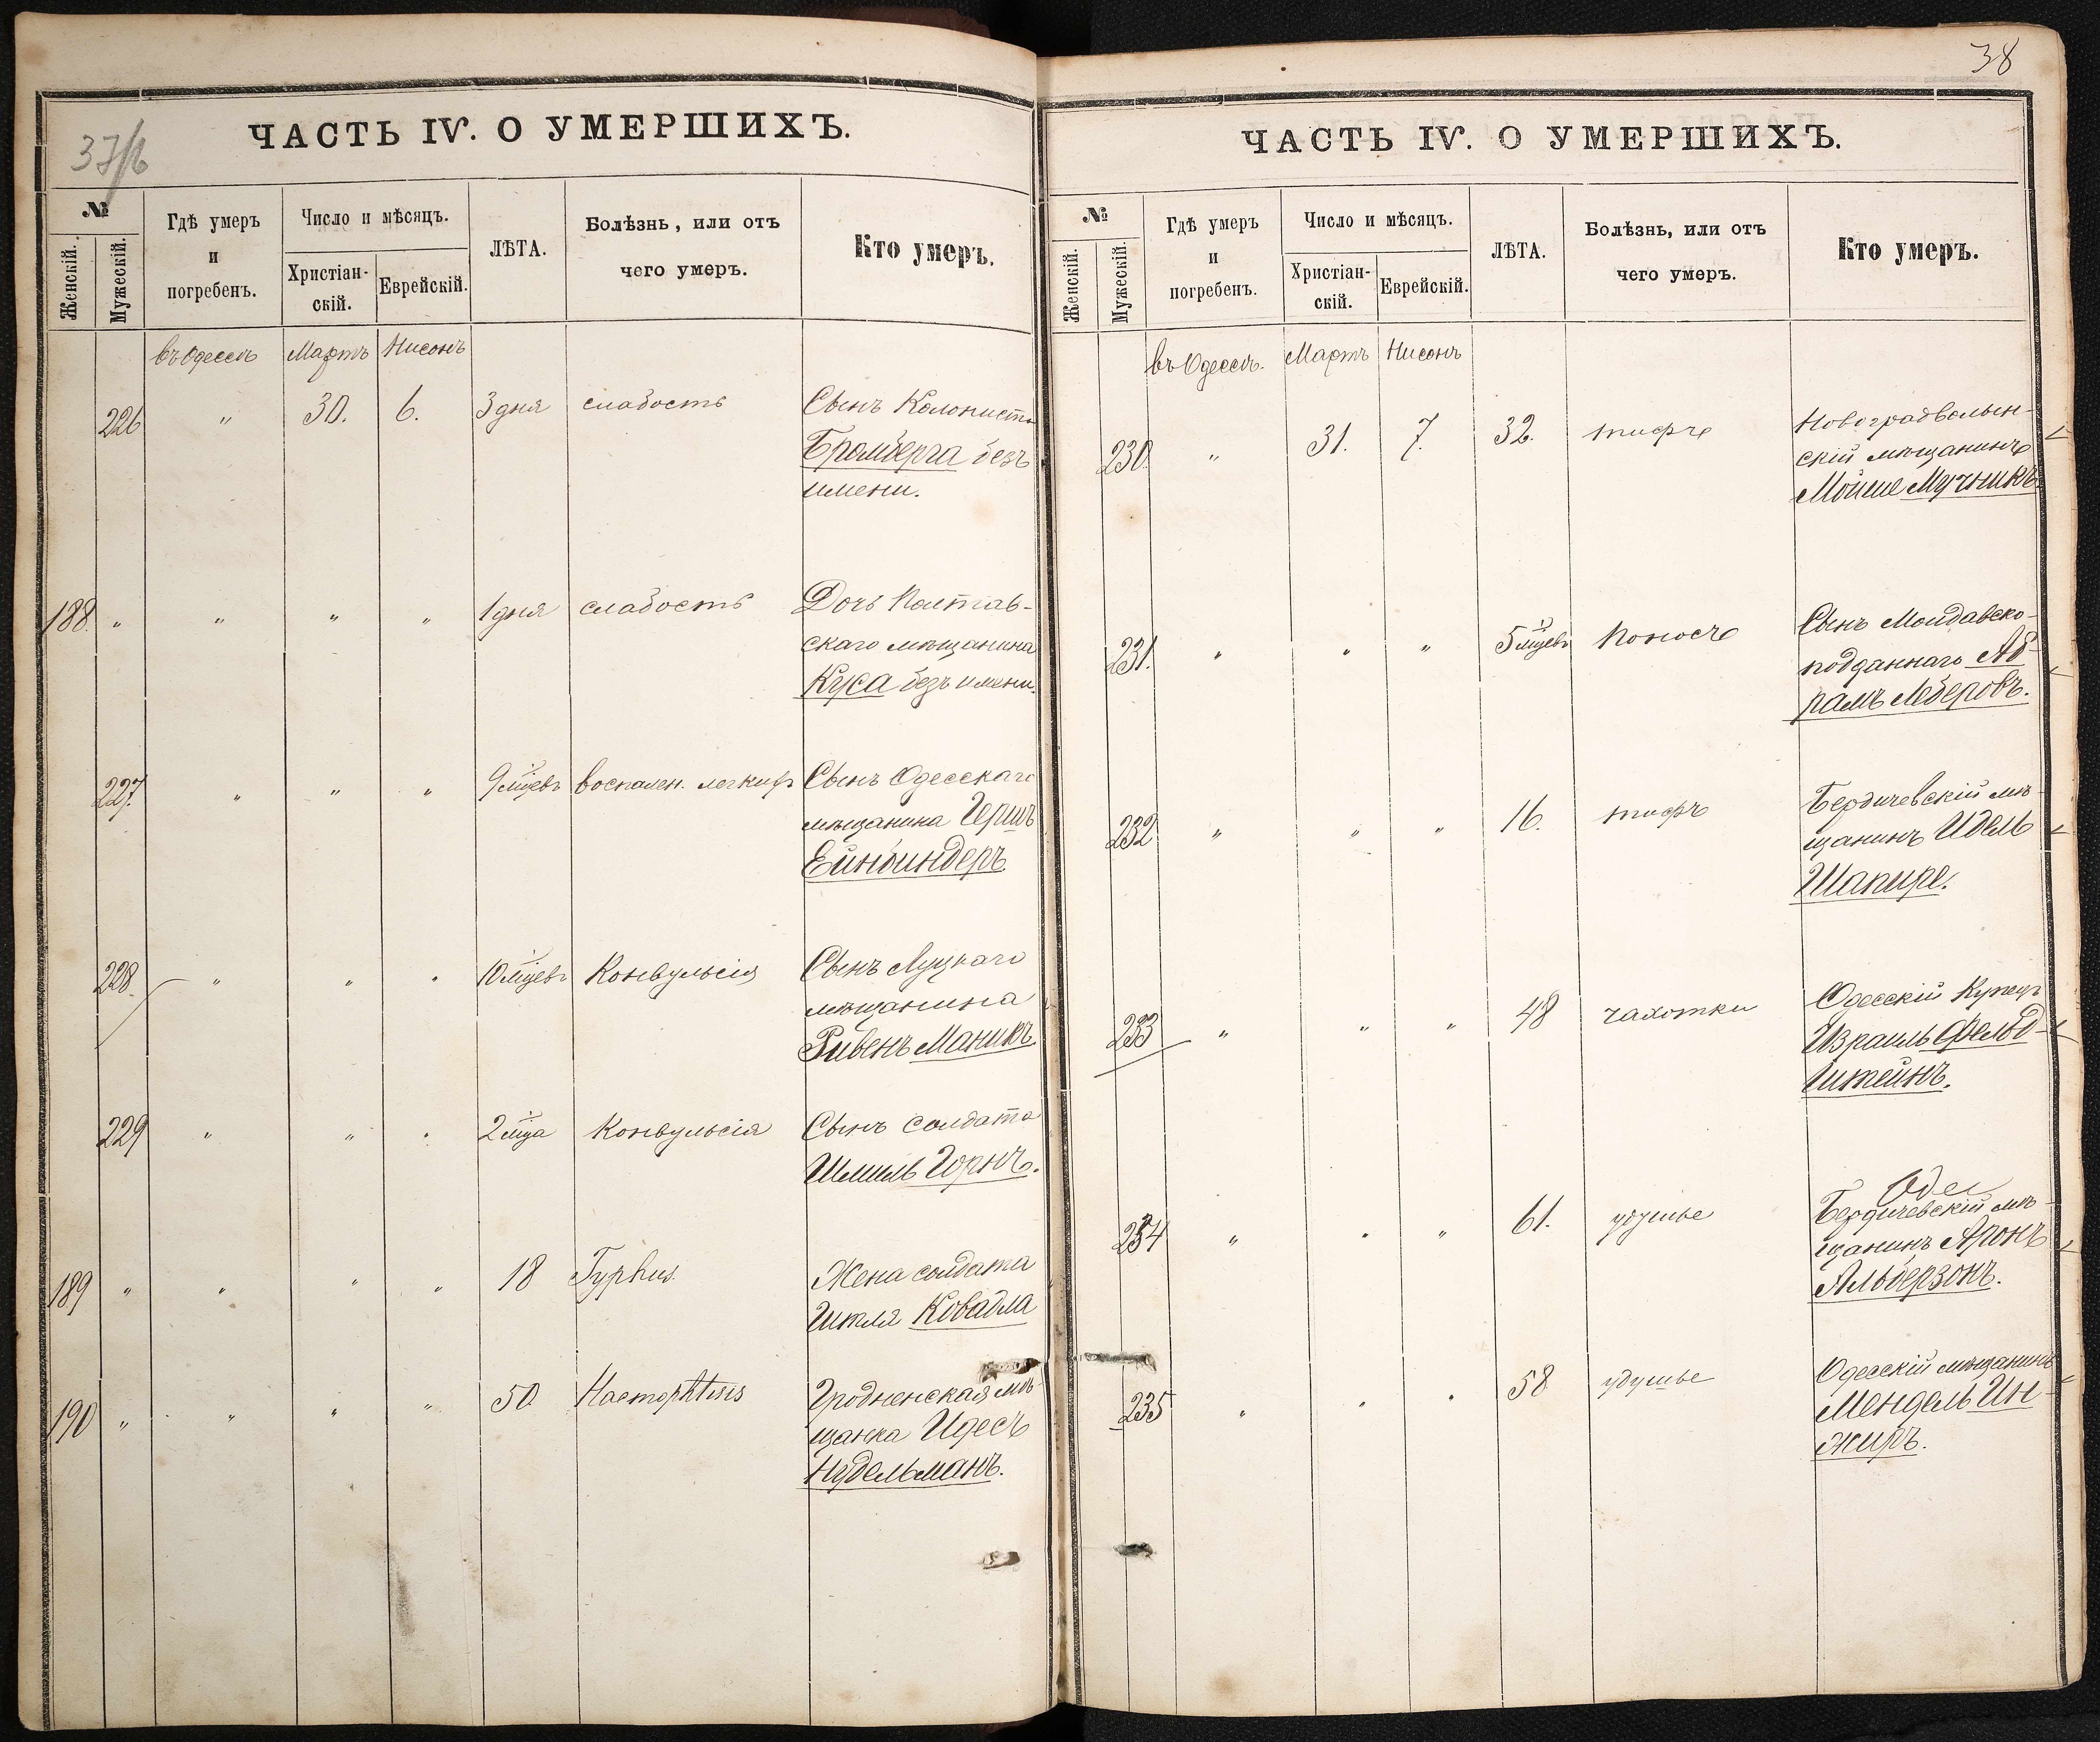 37/б
ЧАСТЬ IV. О УМЕРШИХЪ.
№
Женскій.
Мужескій.
Гдѣ умеръ
и
погребенъ.
Число и мѣсяцъ.
Христіан-
скій.
Еврейскій.
ЛѢТА.
Болѣзнь, или отъ
чего умеръ.
Кто умеръ.
въ Одессѣ Мартъ Нисонъ
226 " 30. 6. 3 дня слабость Сынъ Колониста
Бромберга безъ
имени.
188. " " " " 1 дня слабость Дочь Полтав-
скаго мѣщанина
Куса безъ имени.
227. " " " 9 мѣцевъ воспален. легкихъ Сынъ Одесскаго
мѣщанина Гершъ
Ейнбиндеръ
228. " " " 10 мѣцевъ Конвульсія Сынъ Луцкаго
мѣщанина
Ривенъ Маникъ
229 " " " 2 мѣца Конвульсія Сынъ солдата
Шмиль Горнъ.
189 " " " " 18 Typhus. Жена солдата
Итля Ковадла
190 " " " " 50 Haemophtisis Гродненская мѣ-
щанка Идесъ
Нудельманъ.
38
ЧАСТЬ IV. О УМЕРШИХЪ.
№
Женскій.
Мужескій.
Гдѣ умеръ
и
погребенъ.
Число и мѣсяцъ.
Христіан-
скій.
Еврейскій.
ЛѢТА.
Болѣзнь, или отъ
чего умеръ.
Кто умеръ.
въ Одессѣ. Мартъ Нисонъ
230. " 31. 7. 32. тифъ Новоградволын-
скій мѣщанинъ
Мойше Мучникъ
231. " " " 5 мѣцевъ Поносъ Сынъ Молдавско-
подданнаго Аб-
рамъ Леберовъ.
232 " " " 16. тифъ Бердичевскій мѣ-
щанинъ Идель
Шапире.
233 " " " 48 чахотки Одесскій Купецъ
Израиль Фельд-
штейнъ.
Одес
234 " " " 61. удушье Бердичевскій мѣ-
щанинъ Аронъ
Альберзонъ.
235 " " " 58 удушье Одесскій мѣщанинъ
Мендель Ин-
жиръ.